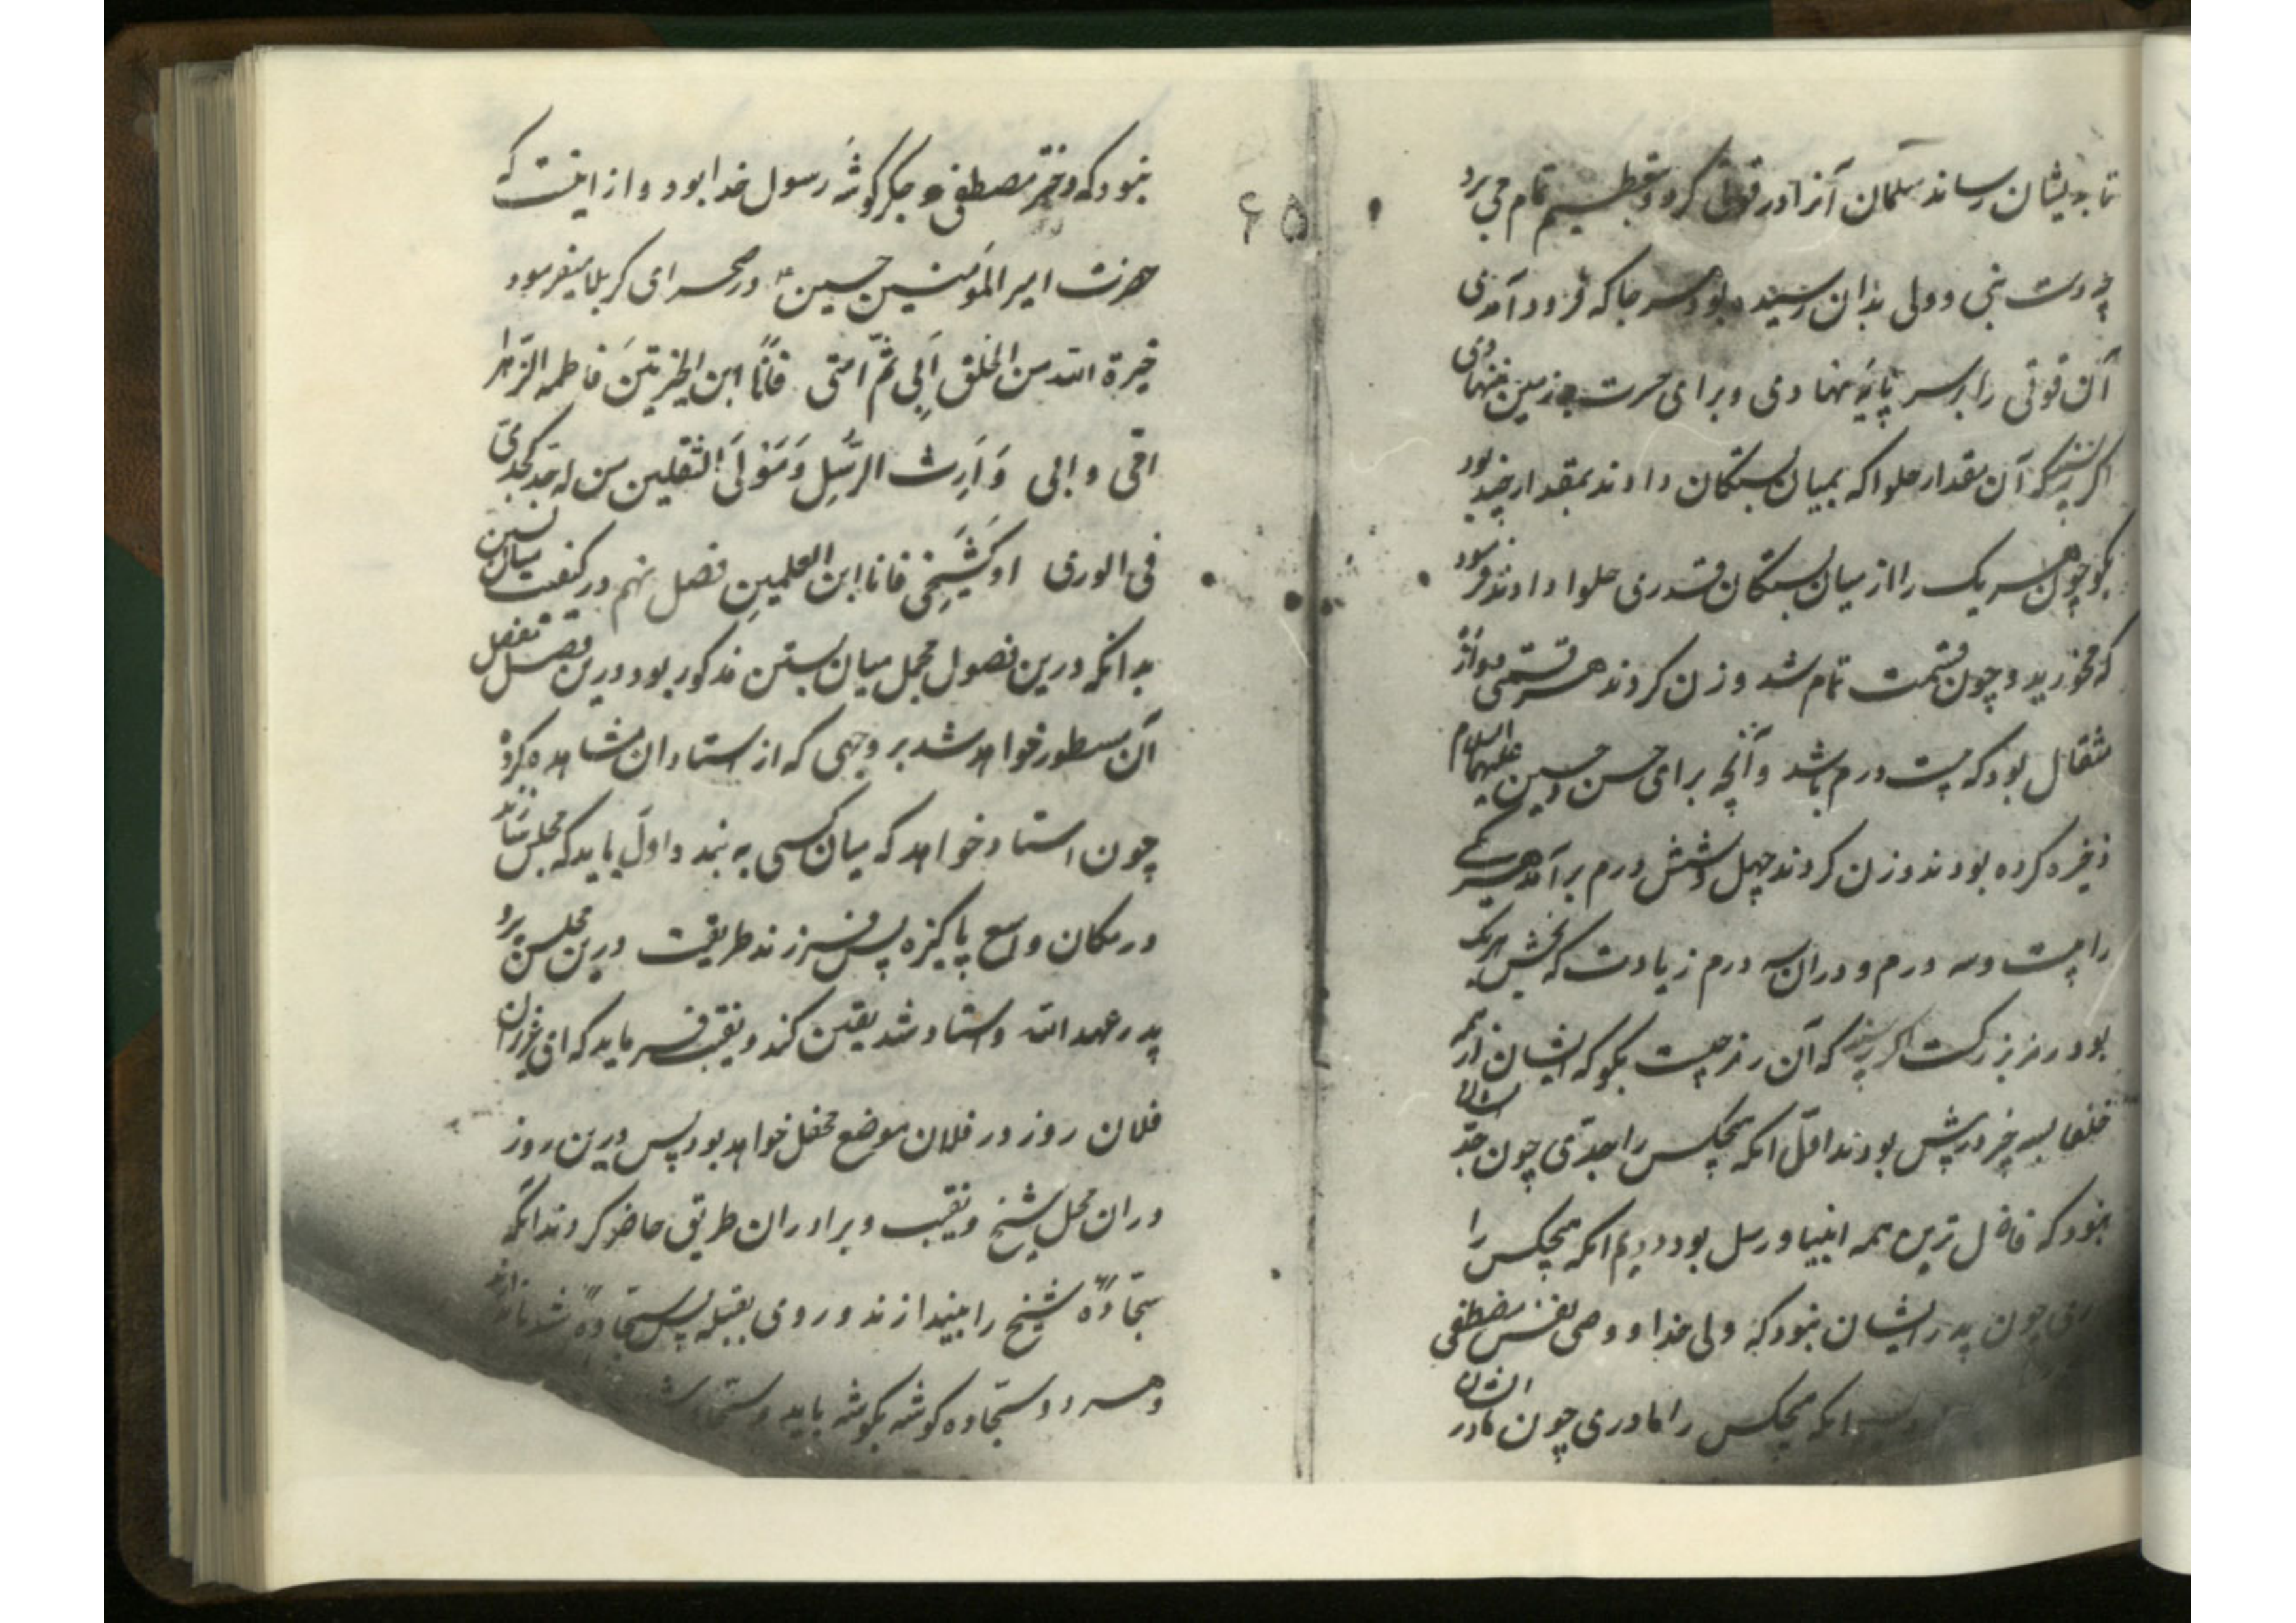 تا بدیشان رساند سلمان آنرا در قوطی کرد و بتعظیم تمام می برد
چه دست نبی و ولی بدان رسیده بود هر جا که فرود آمدی
آن قوتی را بر سر پایه نهادی و برای حرمت بزمین ننهادی
اگر پرسند که آن مقدار حلوا که بمیان بستکان دادند بمقدار چند بود
بکو چون هر یک را از میان بستکان قدری حلوا دادند فرمود
که مخورید و چون قسمت تمام شد وزن کردند هر قسمتی دوازده
مثقال بود که بیست درم باشد و آنچه برای حسن و حسین علیهما السلام
ذخیره کرده بودند وزن کردند چهل و شش درم برآمد هر یکی
را بیست و سه درم و دران سه درم زیادت که بخش هر یک
بود رمز بزرکست اکر پرسند که آن رمز چیست بکو که ایشان از همه
خلفا بسه چیز در پیش بودند اول انکه هیچکس را جدی چون جد ایشان
نبود که فاضل ترین همه انبیا و رسل بود دویم انکه هیچکس را
چون پدر ایشان نبود که ولی خدا و وصی نفس مصطفی
انکه هیچکس را مادری چون مادر ایشان
۶۵
نبود که دختر مصطفی و جکرکوشه رسول خدا بود و از اینست که
حضرت امیر المؤمنین حسین ع در صحرای کربلا میفرمود
خیرة الله من الخلق اَبی ثمّ امّتی فانا ابن الخیرتین فاطمه الزهرا
امّی و ابی وَارِث الرُّسِل وَمَوْلَی الثقلین من له جد کجدّی
فی الوری او کَشَیخی فانا ابن العلمین فصل نهم در کیفیت میان بستن
بدانکه درین فصول مجمل میان بستن مذکور بود درین فصل مفصل
آن مسطور خواهد شد بر وجهی که از استادان مشاهده کرده
چون استاد خواهد که میان کسی به بندد اول باید که مجلس سازند
در مکان واسع پاکیزه پس فرزند طریقت درین مجلس برد
پدر عهد الله و استاد شد یقین کند و نقیب فرماید که
فلان روز در فلان موضع محفل خواهد بود پس درین روز
دران محل شیخ و نقیب و برادران طریق حاضر کردند انکه
سجادهٔ شیخ را بیندازند و روی بقبله پس سجادهٔ
و هر دو سجاده کوشه بکوشه باید